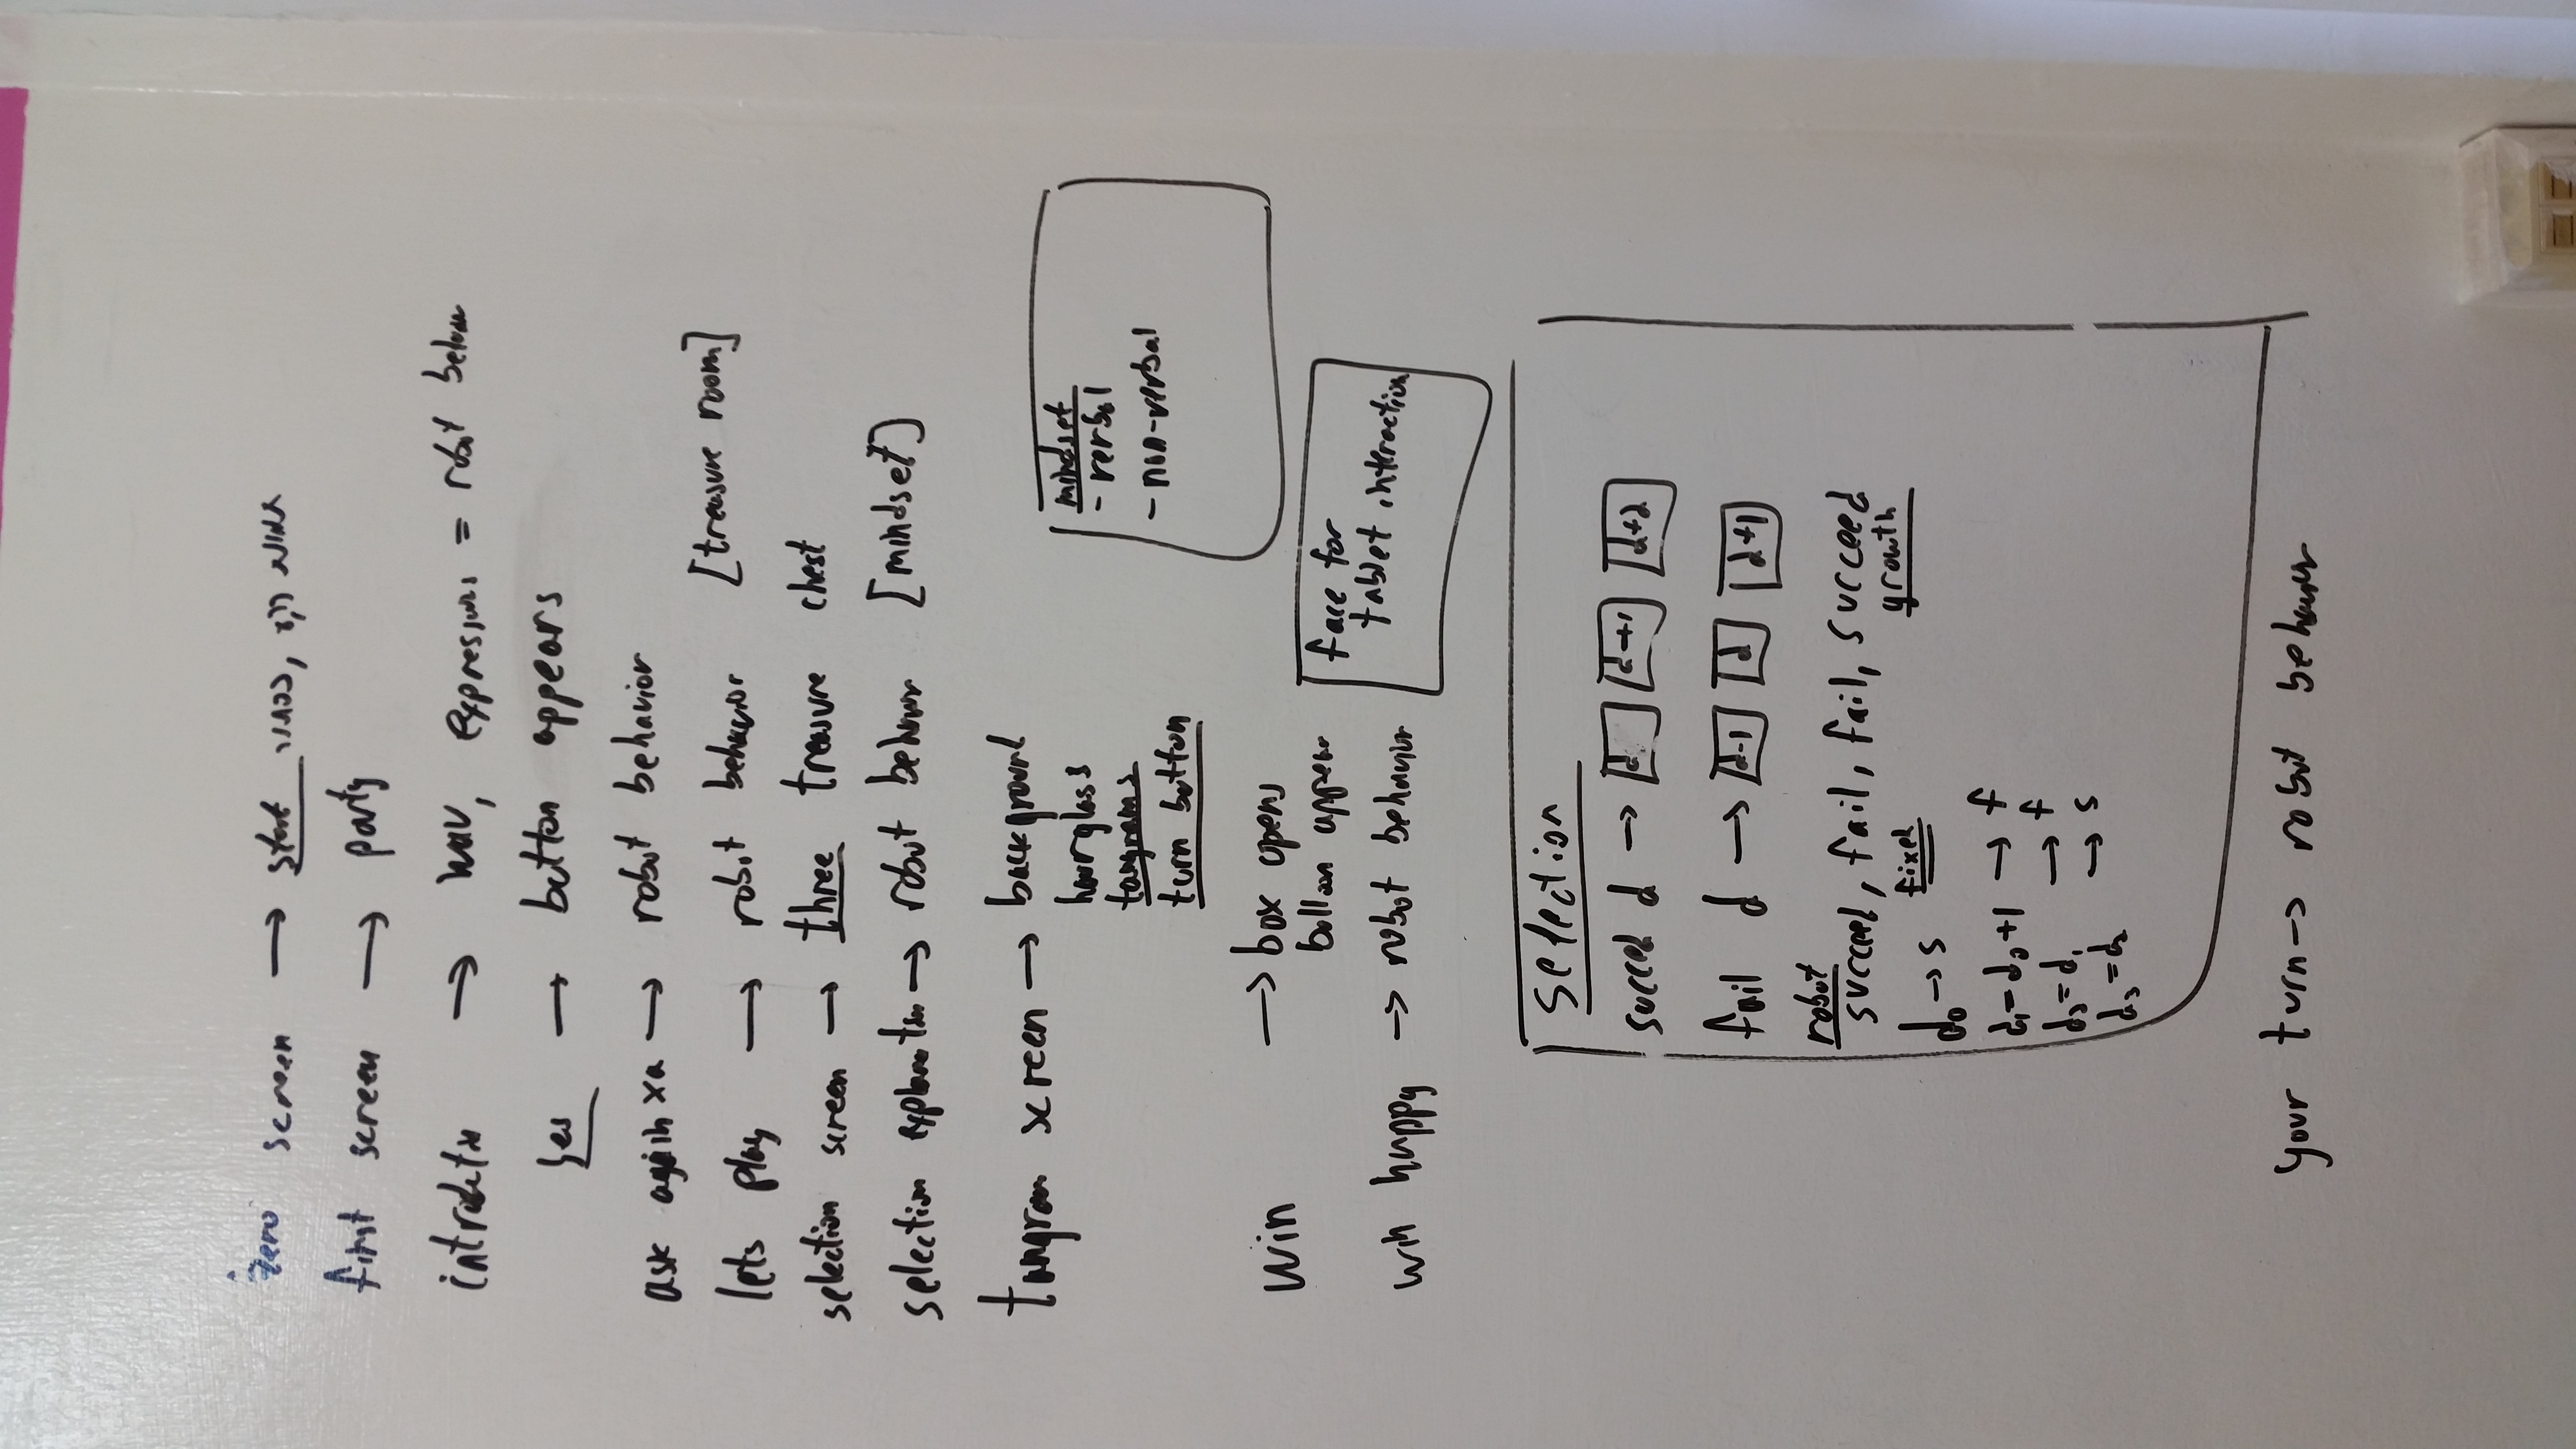 zero screen → start
first screen → party
introduction → wav, expressions = robot behavior
yes → button appears
ask again x2 → robot behavior
lets play → robot behavior [treasure room]
selection screen → three treasure chest
selection explanation → robot behavior [mindset]
tangram screen → background
hourglass
tangrams
turn button
mindset
- verbal
- non-verbal
win → box opens
balloon appear
win happy → robot behavior
face for
tablet interaction
selection
succeed d → d d+1 d+2
fail d → d-1 d d+1
robot
succeed, fail, fail, succeed
fixed growth
d₀ → s
d₁ = d₀ + 1 → f
d₂ = d₁ → f
d₃ = d₂ → s
your turn → robot behavior